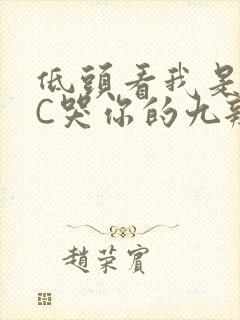 低頭看我是
C哭你的九
趙荣賓